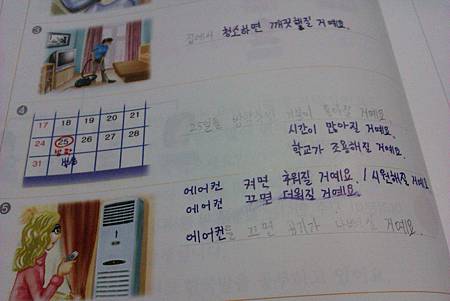 ③
집에서 청소하면 깨끗해질 거예요.
④
17 18 19 20 21
24 25 26 27 28
31 방학
25일 방학하면 기분이 좋아질 거예요.
시간이 많아질 거예요.
학교가 조용해질 거예요.
에어컨 켜면 추워질 거예요. / 시원해질 거예요
에어컨 끄면 더워질 거예요.
⑤
에어컨를 끄면 공기가 나빠질 거예요.